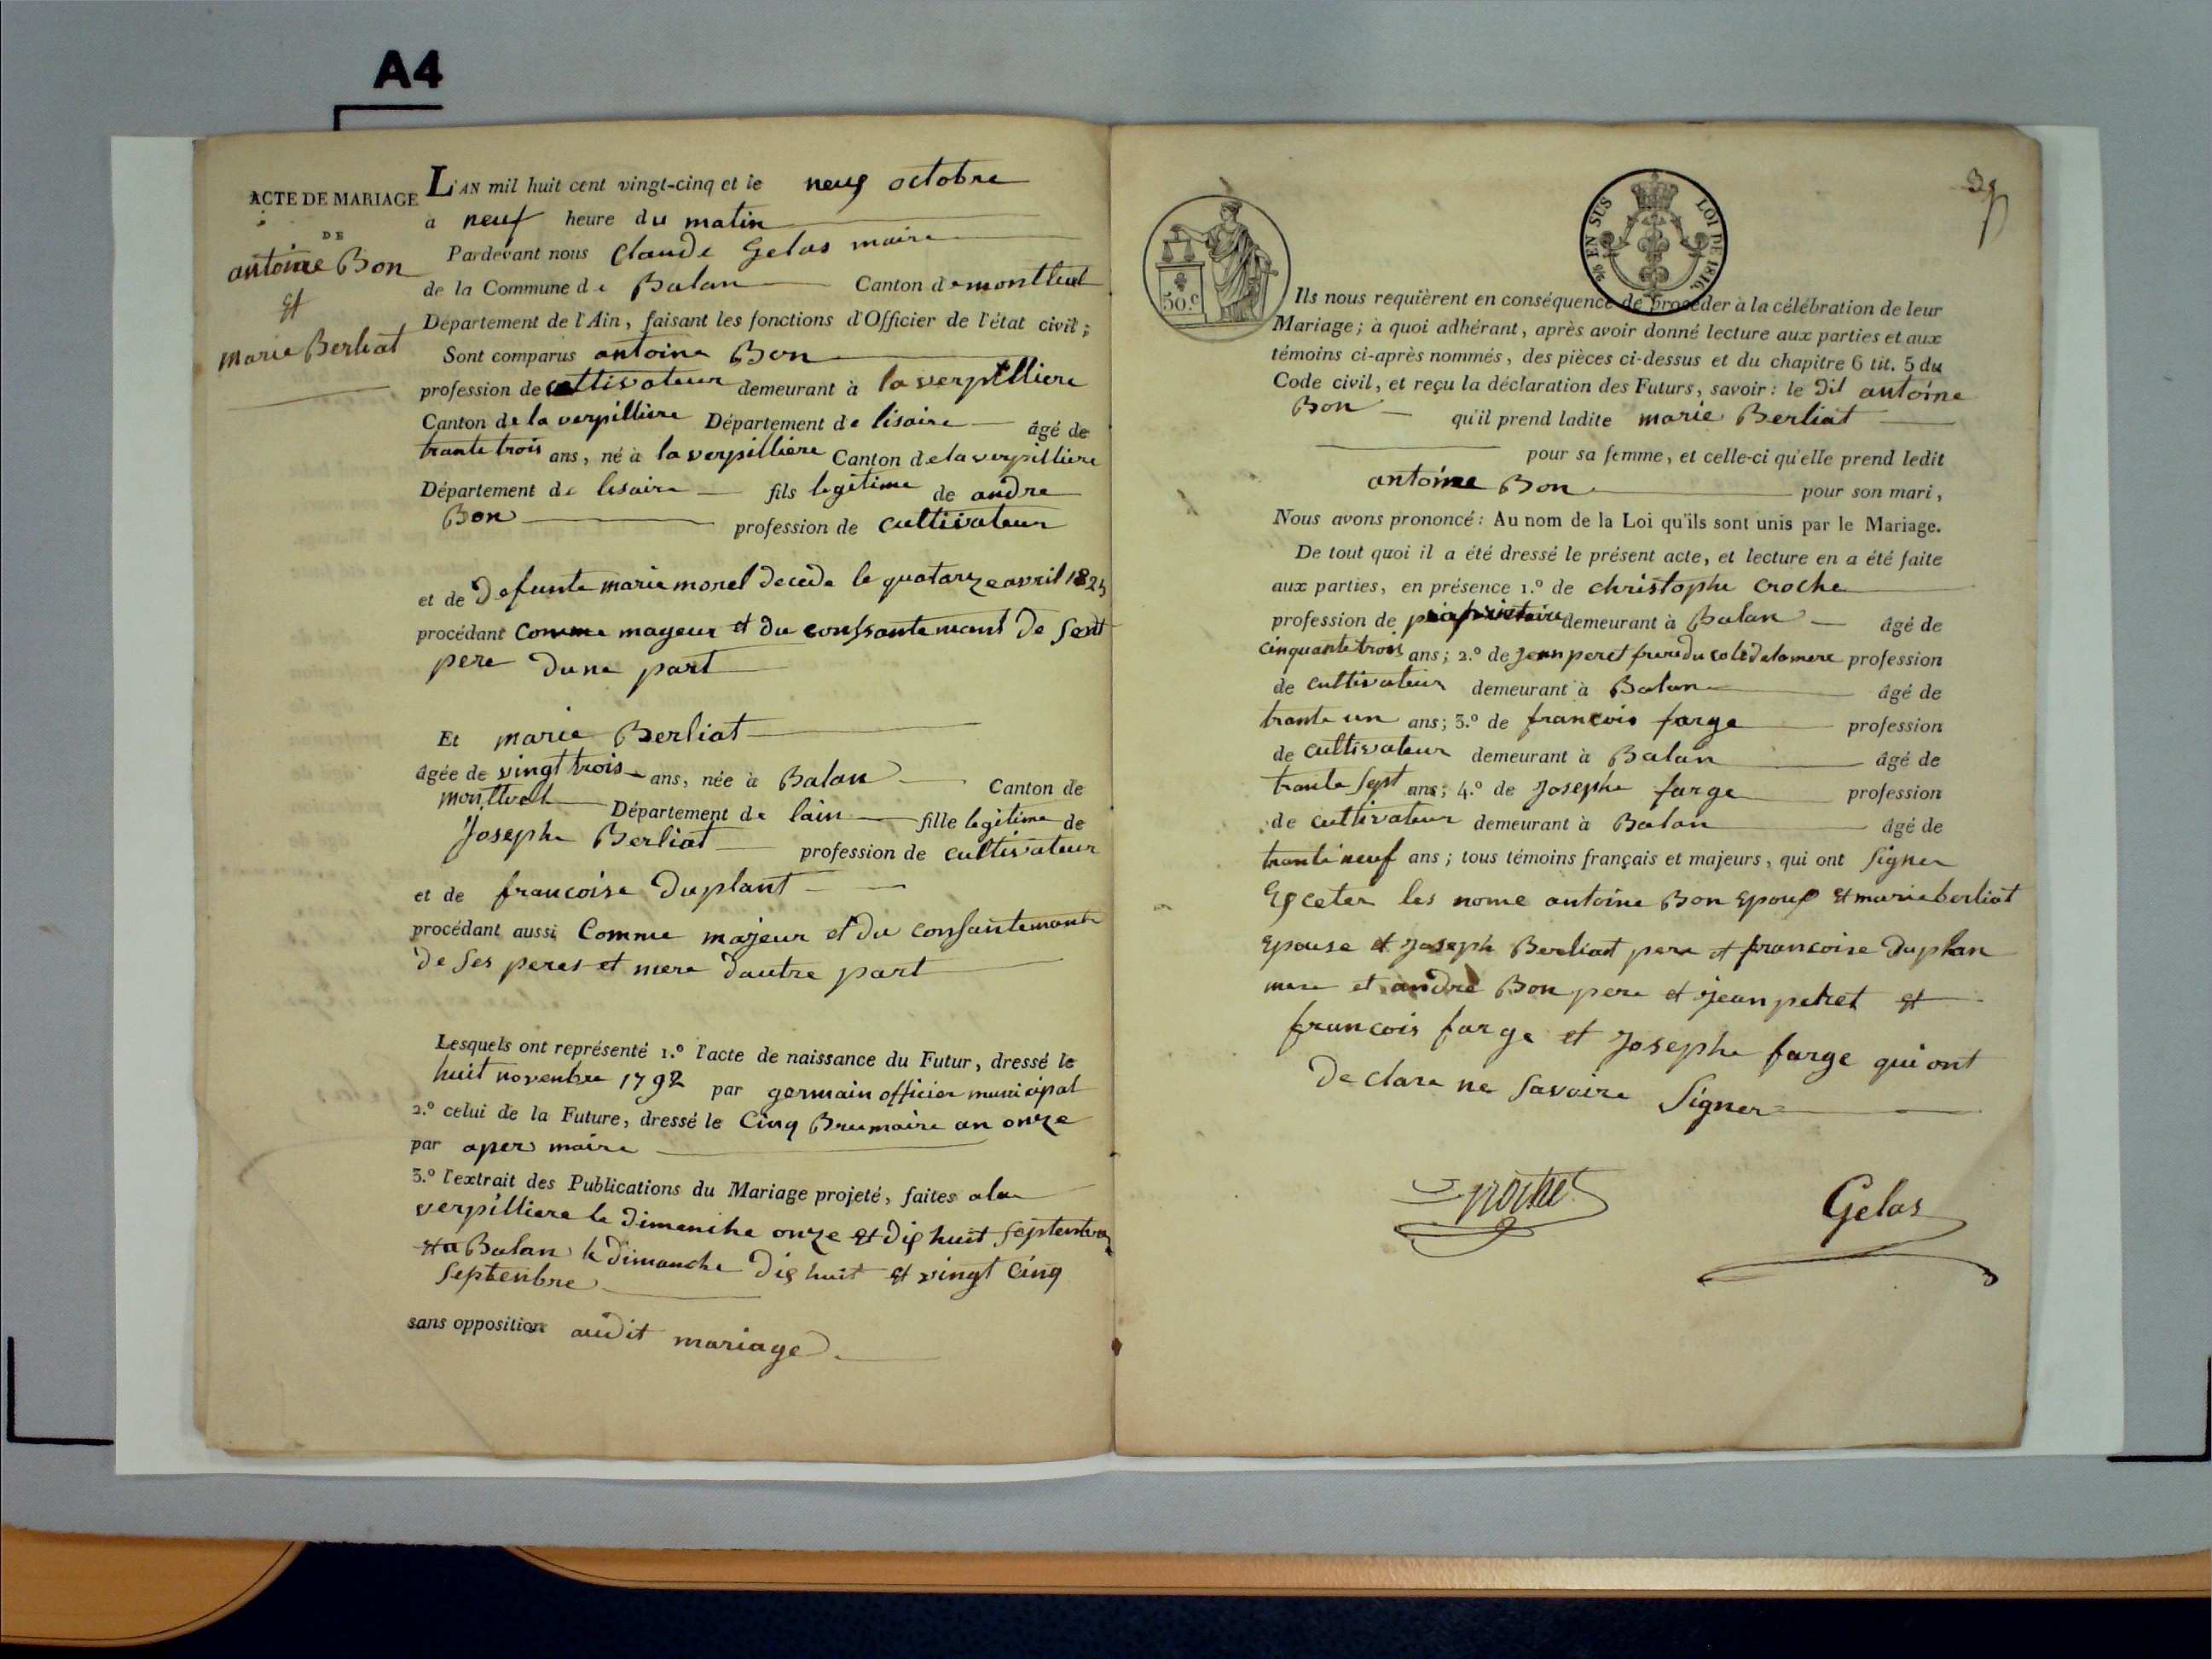 A4
ACTE DE MARIAGE
DE
antoine Bon
et
marie Berliat
L'AN mil huit cent vingt-cinq et le neuf octobre
à neuf heure du matin
Pardevant nous Claude Gelas maire
de la Commune de Balan Canton de montluel
Département de l'Ain, faisant les fonctions d'Officier de l'état civil;
Sont comparus antoine Bon
profession de cultivateur demeurant à la verpilliere
Canton de la verpilliere Département de lisaire âgé de
trante trois ans, né à la verpilliere Canton de la verpilliere
Département de lisaire fils legitime de andre
Bon profession de cultivateur
et de defunte marie morel decede le quatorze avril 1825
procédant comme mageur et du conssantemant de sont
pere dune part
Et marie Berliat
âgée de vingt trois ans, née à Balan Canton de
montluel Département de lain fille legitime de
Josephe Berliat profession de cultivateur
et de francoise Duplant
procédant aussi Comme majeur et du consantemante
de ses peres et mere dautre part
Lesquels ont représenté 1.º l'acte de naissance du Futur, dressé le
huit novenbre 1792 par germain officier municipal
2.º celui de la Future, dressé le Cinq Brumaire an onze
par aper maire
3.º l'extrait des Publications du Mariage projeté, faites a la
verpilliere le dimenche onze et dix huit septenbre
et a Balan le dimanche dix huit et vingt Cinq
septenbre
sans opposition audit mariage
50.c
EN SUS LOI DE 1816.
Ils nous requièrent en conséquence de procéder à la célébration de leur
Mariage; à quoi adhérant, après avoir donné lecture aux parties et aux
témoins ci-après nommés, des pièces ci-dessus et du chapitre 6 tit. 5 du
Code civil, et reçu la déclaration des Futurs, savoir: le dit antoine
Bon qu'il prend ladite marie Berliat
pour sa femme, et celle-ci qu'elle prend ledit
antoine Bon pour son mari,
Nous avons prononcé: Au nom de la Loi qu'ils sont unis par le Mariage.
De tout quoi il a été dressé le présent acte, et lecture en a été faite
aux parties, en présence 1.º de christophe croche
profession de propriétaire demeurant à Balan âgé de
cinquante trois ans; 2.º de jean peret frere du coté de la mere profession
de cultivateur demeurant à Balan âgé de
trante un ans; 3.º de francois farge profession
de cultivateur demeurant à Balan âgé de
trante sept ans; 4.º de Josephe farge profession
de cultivateur demeurant à Balan âgé de
trante neuf ans; tous témoins français et majeurs, qui ont signer
Exceter les nome antoine Bon Epoux et marie berliat
Epouse et Joseph Berliat pere et francoise Duplan
mere et andré Bon pere et jean petret et
francois farge et Josephe farge qui ont
declare ne savoire signer
Crochet
Gelas